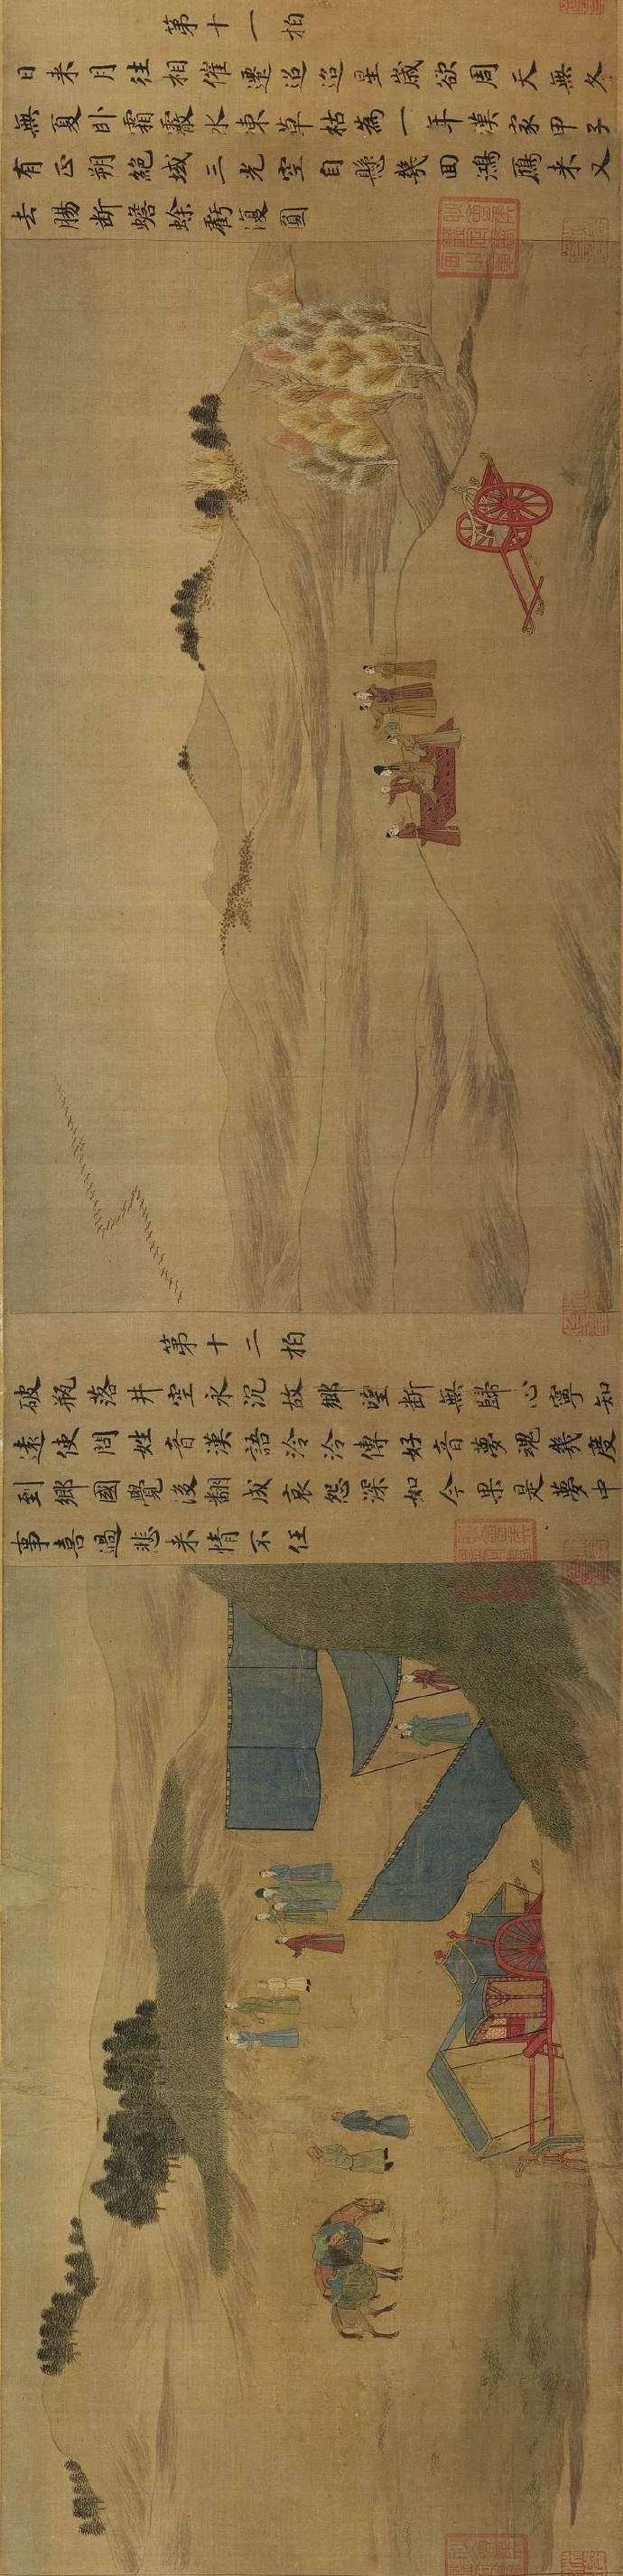 第十一拍
日来月往相催遷迢迢星歲欲周天無冬
無夏卧霜霰水凍草枯為一年漢家甲子
有正朔絕域三光空自懸幾回鴻鴈来又
去腸斷蟾蜍虧復圓
第十二拍
破瓶落井空永沉故鄉望斷無歸心寧知
遠使問姓音漢語泠泠傳好音夢魂幾度
到鄉國覺後翻成哀怨深如今果是夢中
事喜過悲来情不任